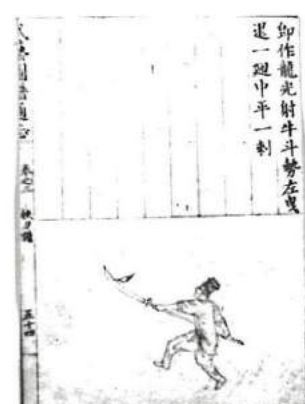 卽作龍光射牛斗勢左曳
退一廻中平一刺
武藝圖譜通志
卷之三
挾刀譜
五十四